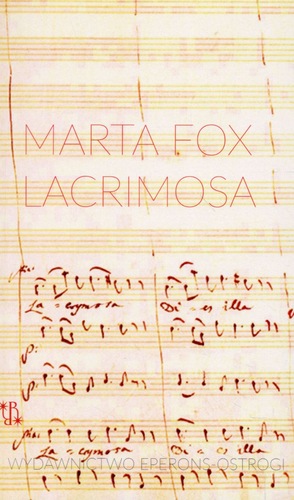 MARTA FOX
LACRIMOSA
La - crymosa Di - es illa
La - crymosa Di - es illa
WYDAWNICTWO EPERONS-OSTROGI